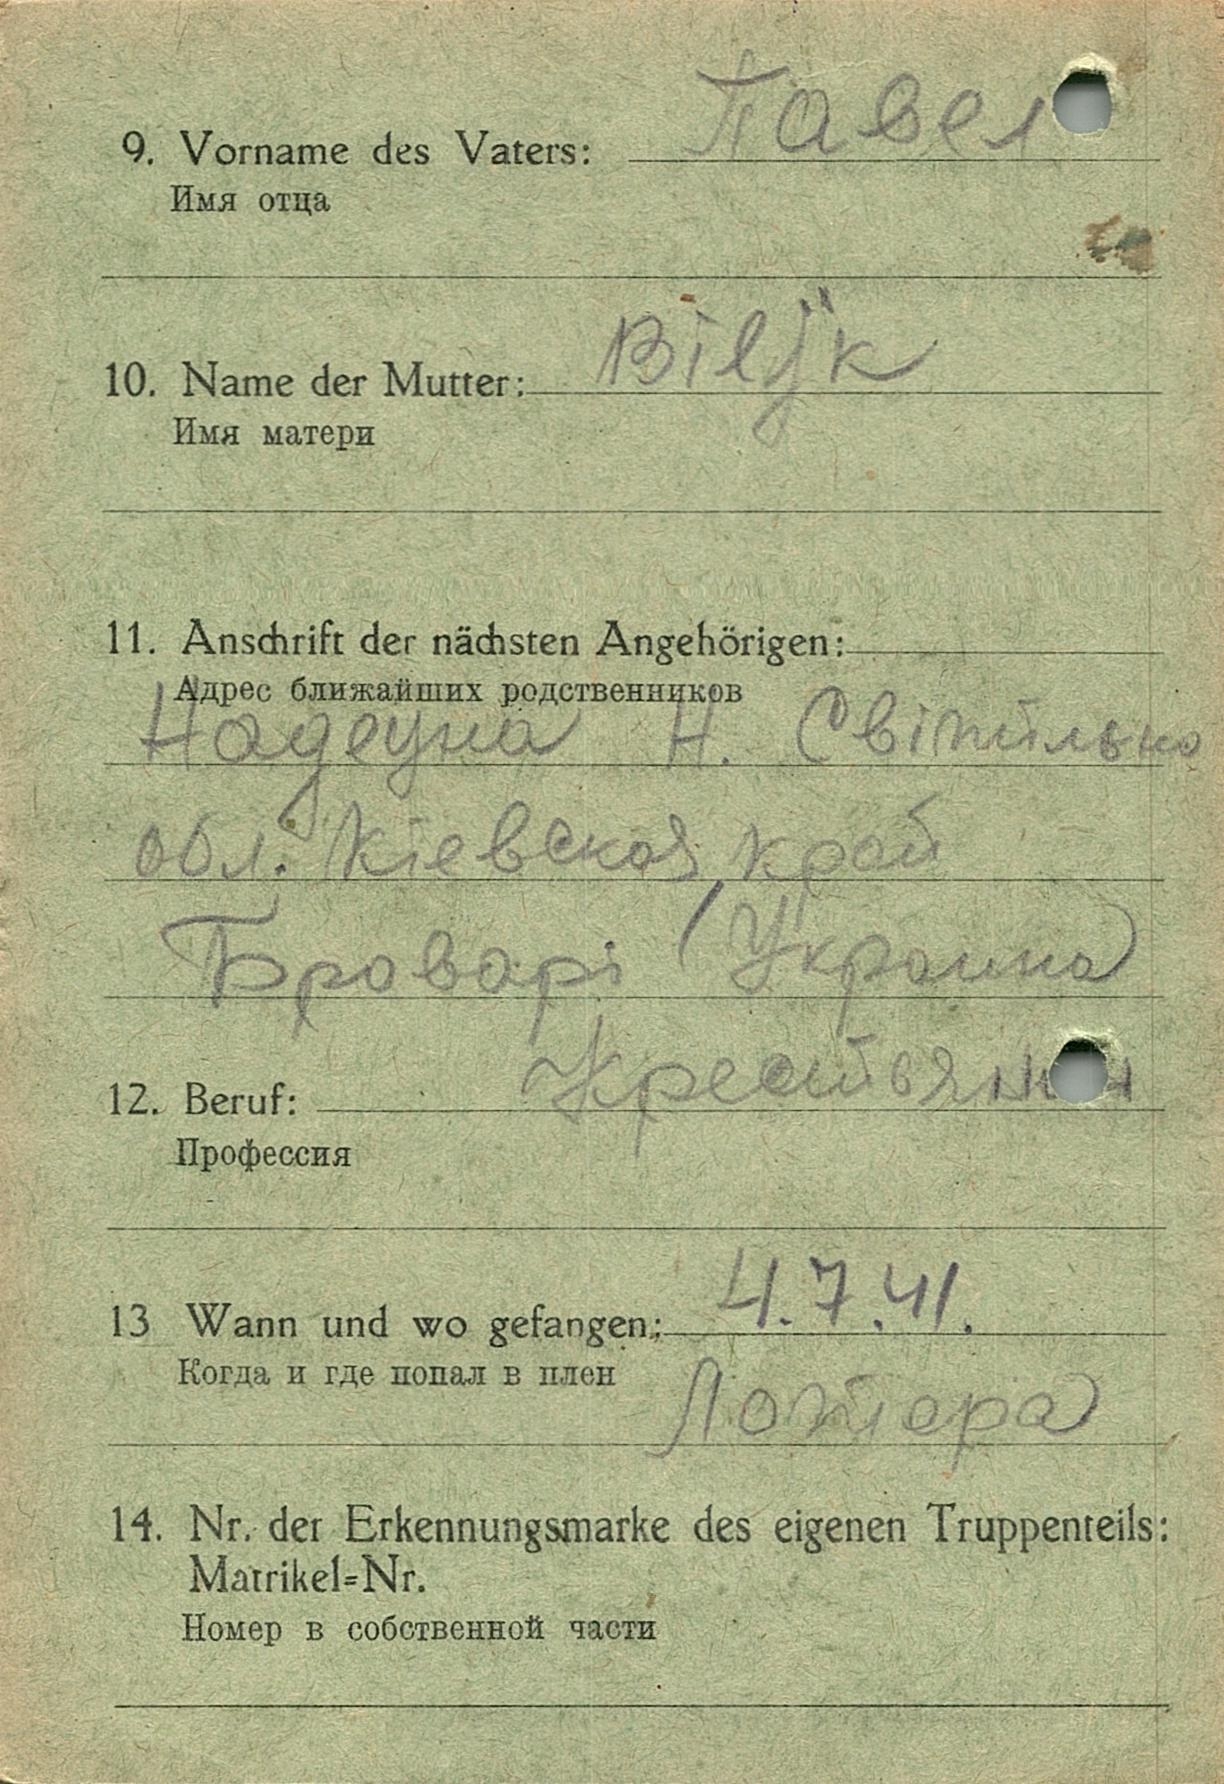 Павел
9. Vorname des Vaters:
Имя отца
10. Name der Mutter:
Имя матери
11. Anschrift der nächsten Angehörigen:
Адрес ближайших родственников
Н. Світильно
обл. Кіевская край
Броварі (Украина)
12. Beruf: Крестьянин
Профессия
13 Wann und wo gefangen: 4.7.41.
Когда и где попал в плен
14. Nr. der Erkennungsmarke des eigenen Truppenteils:
Matrikel=Nr.
Номер в собственной части